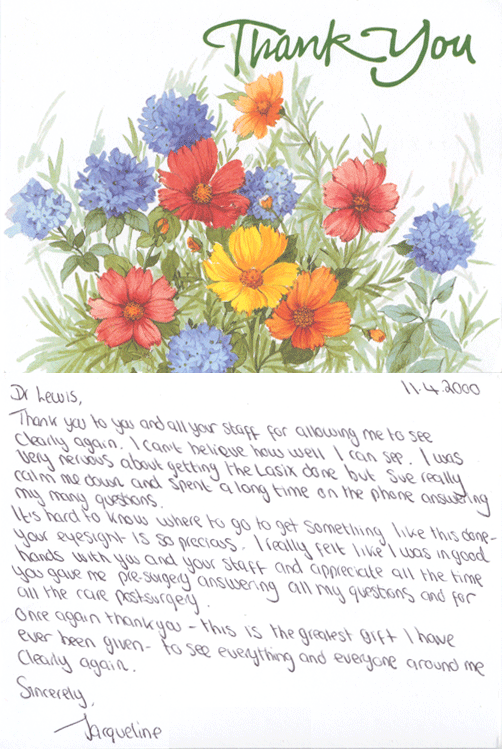 Thank You
Dr Lewis,
11.4.2000
Thank you to you and all your staff for allowing me to see
clearly again. I can't belique how well I can see. I was
very nervous about getting the Lasix done but Sue really
calm me down and spent a long time on the phone answering
my many questions.
It's hard to know where to go to get something like this done-
your eyesight is so precious. I really felt like I was in good
hands with you and your staff and appreciate all the time
you gave me pre-surgery answering all my questions and for
all the care postsurgery.
Once again thankyou - this is the greatest gift I have
ever been given - to see everything and everyone around me
clearly again.
Sincerely,
Jacqueline